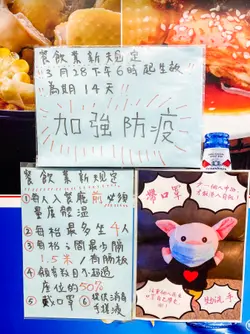 餐飲業新規定
3月28下午6時起生效
為期14天!!
加強防疫
餐飲業新規定
①每人入餐廳前必須
量度體溫
②每枱最多坐4人
③每枱之間最少隔
1.5米/有隔板
④顧客數目不超過
座位的50%
⑤戴口罩
⑥提供消毒
搓手液
帶口罩
勤洗手